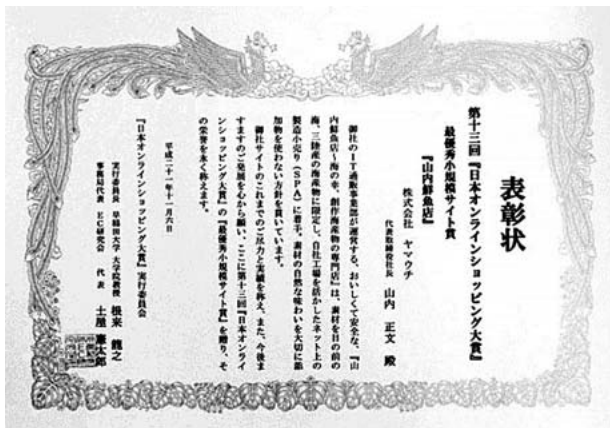 表彰状
第十三回『日本オンラインショッピング大賞』
最優秀小規模サイト賞
『山内鮮魚店』
株式会社 ヤマウチ
代表取締役社長 山内 正文 殿
御社のIT通販事業部が運営する、おいしくて安全な、『山
内鮮魚店〜海の幸、創作海産物の専門店』は、素材を目の前の
海、三陸産の海産物に限定し、自社工場を活かしたネット上の
製造小売り(SPA)に着手。素材の自然な味わいを大切に添
加物を使わない方針を貫いています。
御社サイトのこれまでのご尽力と実績を称え、また、今後ま
すますのご発展を心から願い、ここに第十三回『日本オンライ
ンショッピング大賞』の『最優秀小規模サイト賞』を贈り、そ
の栄誉を永く称えます。
平成二十一年十一月六日
『日本オンラインショッピング大賞』実行委員会
実行委員長 早稲田大学 大学院教授 根来 龍之
事務局代表 EC研究会 代表 土屋 憲太郎